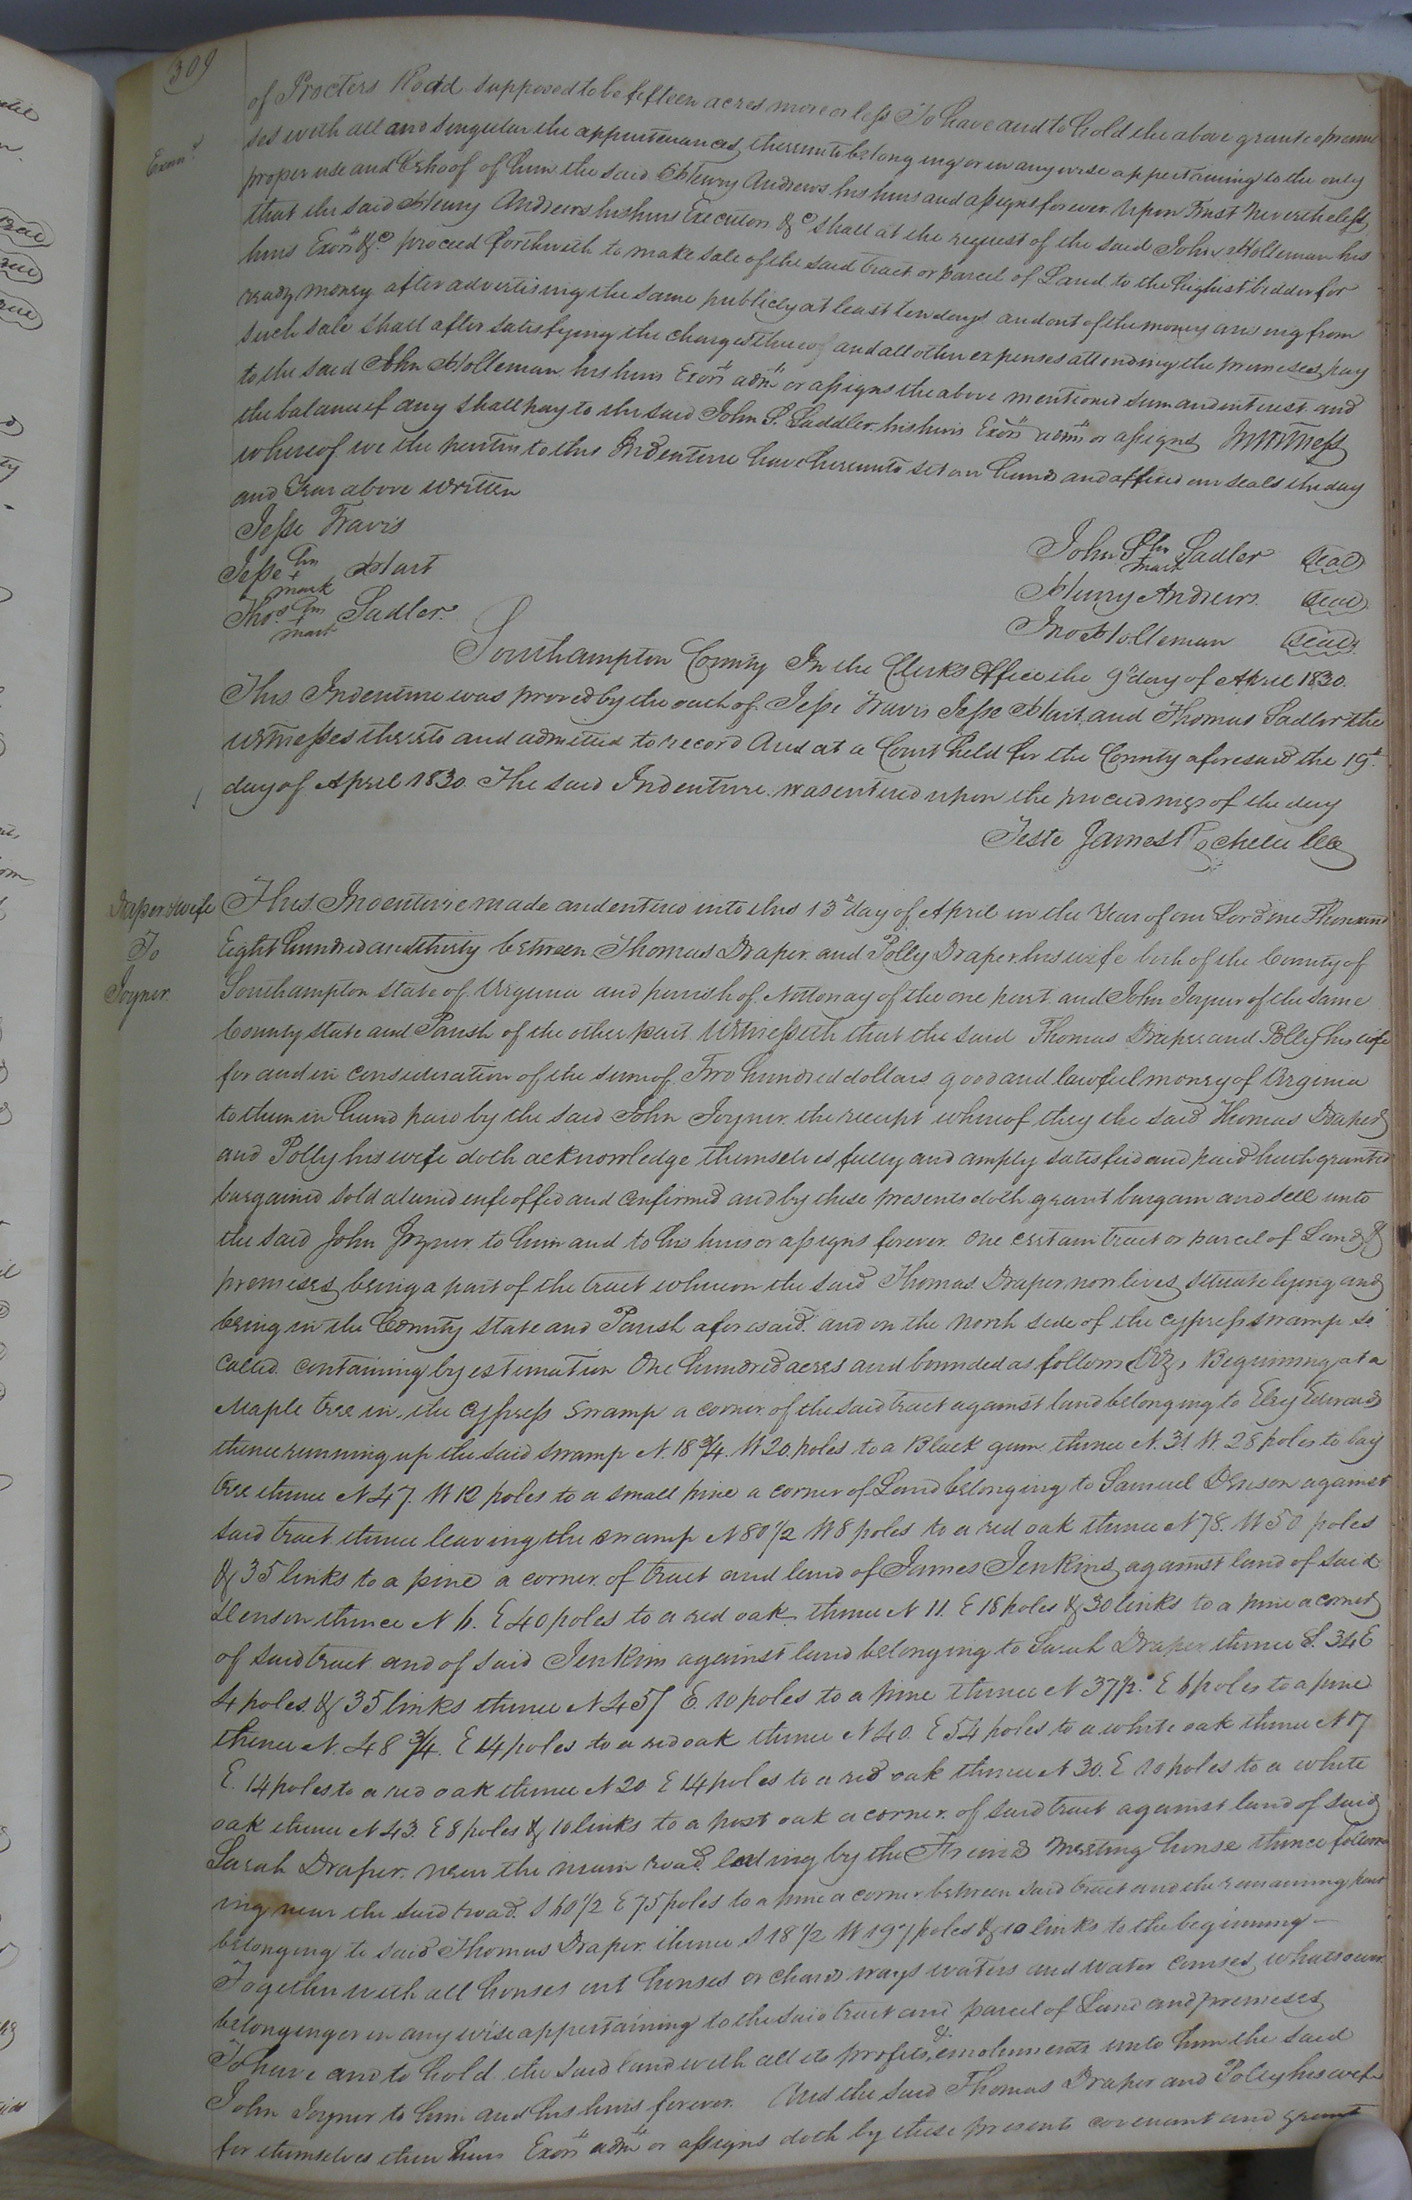 309
of Procters Road supposed to be fifteen acres more or less To have and to hold the above granted premi
Exam.d
ses with all and singular the appurtenances thereunto belonging or in any wise appertaining to the only
proper use and behoof of him the said Henry Andrews his heirs and assigns forever Upon Trust Nevertheless
that the said Henry Andrews his heirs Executors &c shall at the request of the said John Holleman his
heirs Exors &c proceed forthwith to make sale of the said tract or parcel of Land to the highest bidder for
ready money after advertising the same publicly at least ten days and out of the money arising from
such sale shall after satisfying the charges thereof and all other expenses attending the premises pay
to the said John Holleman his heirs Exors adms or assigns the above mentioned sum and interest and
the balance if any shall pay to the said John S. Saddler his heirs Exors adms or assigns In witness
whereof we the parties to this Indenture have hereunto set our hands and affixed our seals the day
and Year above written
Jesse Travis
Jesse his + mark Hart
Thos his + mark Sadler
John S his + mark Sadler seal
Henry Andrews seal
Jno Holleman seal
Southampton County In the Clerks Office the 9th day of April 1830.
This Indenture was proved by the oath of Jesse Travis Jesse Hart and Thomas Sadler the
witnesses thereto and admitted to record And at a Court held for the County aforesaid the 19th
day of April 1830. The said Indenture was entered upon the proceedings of the day
Teste James Rochelle CC
Draper & wife
To
Joyner
This Indenture made and entered into this 13th day of April in the Year of our Lord one Thousand
Eight hundred and thirty between Thomas Draper and Polly Draper his wife both of the County of
Southampton state of Virginia and parish of Nottoway of the one part and John Joyner of the same
County state and Parish of the other part Witnesseth that the said Thomas Draper and Polly his wife
for and in consideration of the sum of Two hundred dollars good and lawful money of Virginia
to them in hand paid by the said John Joyner the receipt whereof they the said Thomas Draper
and Polly his wife doth acknowledge themselves fully and amply satisfied and paid hath granted
bargained sold aliened enfeoffed and confirmed and by these presents doth grant bargain and sell unto
the said John Joyner to him and to his heirs or assigns forever One certain tract or parcel of Land &
premises being a part of the tract whereon the said Thomas Draper now lives situate lying and
being in the County state and Parish aforesaid and on the North side of the cypress swamp so
called containing by estimation One hundred acres and bounded as follows Viz, Beginning at a
Maple tree in the cypress swamp a corner of the said tract against land belonging to Elry Edwards
thence running up the said swamp N. 18 3/4 W 20 poles to a Black gum thence N. 31 W. 28 poles to bay
tree thence N 47. W 12 poles to a small pine a corner of Land belonging to Samuel Denson against
said tract thence leaving the swamp N 80 1/2 W 8 poles to a red oak thence N 78. W 50 poles
& 35 links to a pine a corner of tract and land of James Jenkins against land of said
Denson thence N 6. E 40 poles to a red oak thence N 11. E 18 poles & 30 links to a pine a corner
of said tract and of said Jenkins against land belonging to Sarah Draper thence S. 34 E
4 poles & 35 links thence N 45 E. 10 poles to a pine thence N 37 1/2 E 6 poles to a pine
thence N. 48 3/4. E 14 poles to a red oak thence N 40. E 54 poles to a white oak thence N 17
E. 14 poles to a red oak thence N 20 E 14 poles to a red oak thence N 30. E 10 poles to a white
oak thence N 43. E 8 poles & 10 links to a post oak a corner of said tract against land of said
Sarah Draper near the main road leading by the Friends Meeting house thence follow
ing near the said road S 60 1/2 E 75 poles to a pine a corner between said tract and the remaining part
belonging to said Thomas Draper thence S 18 1/2 W 197 poles & 10 links to the beginning —
Together with all houses out houses orchards ways waters and water courses whatsoever
belonging or in any wise appertaining to the said tract and parcel of Land and premises
To have and to hold the said land with all its profits & emoluments unto him the said
John Joyner to him and his heirs forever. And the said Thomas Draper and Polly his wife
for themselves their heirs Exors adms or assigns doth by these presents covenant and grant